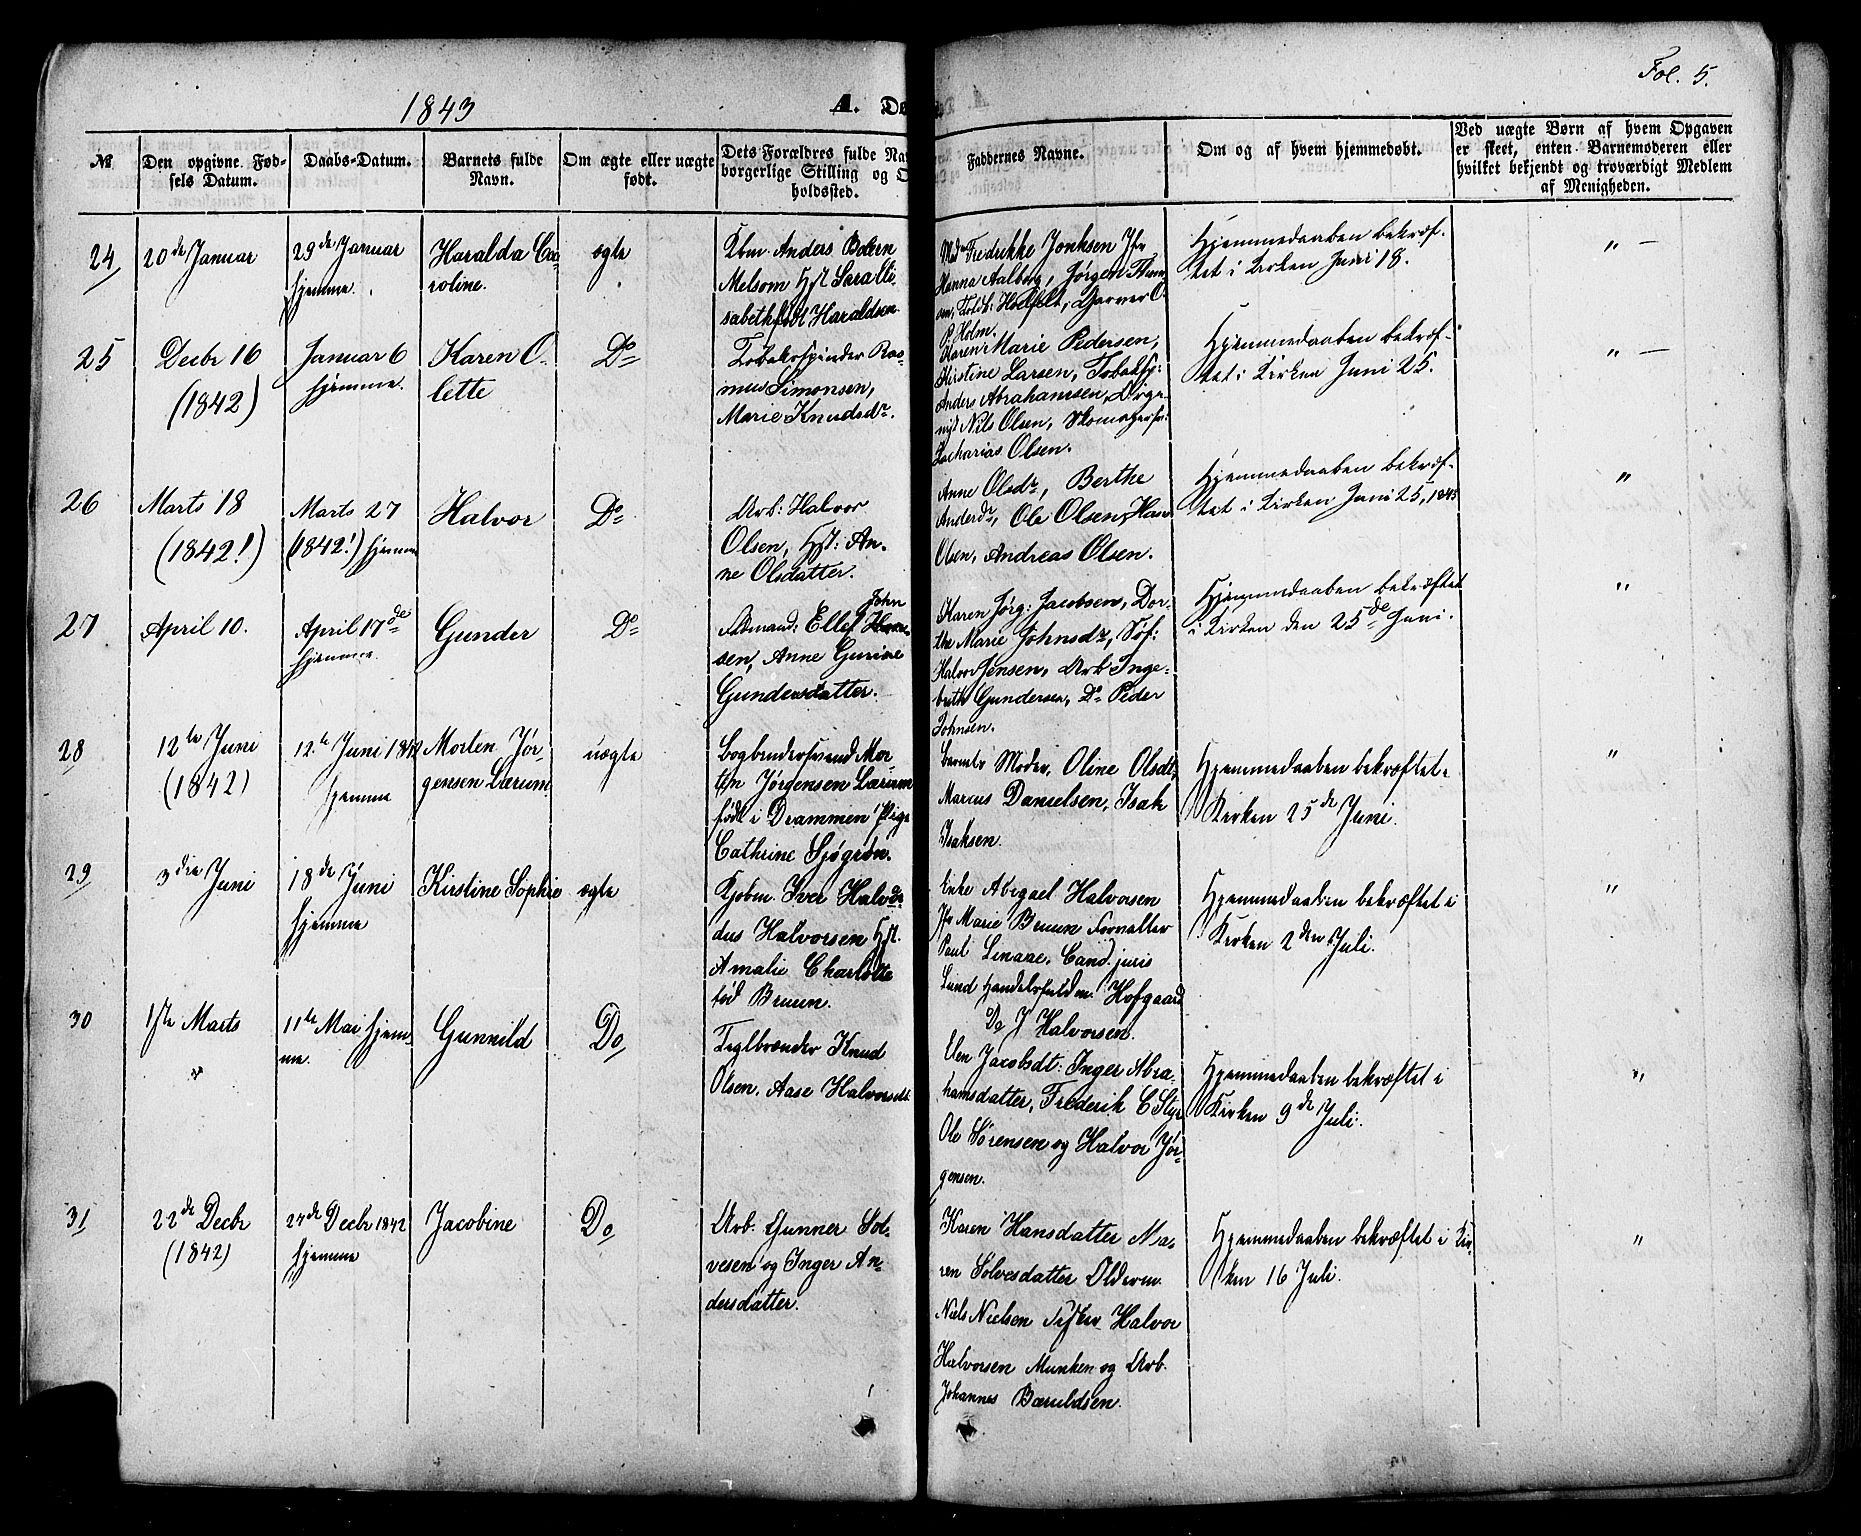 Fol. 5.
1843
A. Dø
No
Den opgivne Fød-
sels Datum.
Daabs-Datum.
Barnets fulde
Navn.
Om ægte eller uægte
født.
Dets Forældres fulde Na
borgerlige Stilling og O
holdssted.
Faddernes Navne.
Om og af hvem hjemmedøbt.
Ved uægte Børn af hvem Opgaven
er skeet, enten Barnemoderen eller
hvilket bekjendt og troværdigt Medlem
af Menigheden.
24
20de Januar
29de Januar
hjemme.
Haralda Ca-
roline.
ægte
Kbm. Anders Bolern
Melsom Hst Sara Eli-
sabeth født Haraldsen
Mad Fredrikke Jonksen Jfr
Hanna Aalborg, Jørgen Thom-
Holfelt, Garver O.
P. Holm.
Hjemmedaaben bekræf-
tet i Kirken Juni 18.
" —
25
Decbr 16
(1842)
Januar 6
hjemme.
Karen O-
lette
Do
Tobakspinder Ras-
mus Simonsen,
Marie Knudsdr.
Karen Marie Pedersen,
Kirstine Larsen, Tobaksp:
Anders Abrahamsen,
Nils Olsen, Skomagersv:
Zacharias Olsen.
Hjemmedaaben bekræf-
tet i Kirken Juni 25.
" —
26
Marts 18
(1842!)
Marts 27
(1842!) hjemme
Halvor
Do
Arb: Halvor
Olsen, Hst: An-
ne Olsdatter.
Anne Olsdr, Berthe
Andersdr, Ole Olsen, Hans
Olsen, Andreas Olsen.
Hjemmedaaben bekræf-
tet i Kirken Juni 25, 1843
"
27
April 10.
April 17de
hjemme.
Gunder
Do
John
Ellef
sen, Anne Gurine
Gundersdatter.
Karen Jørg: Jacobsen, Dor-
the Marie Johnsdr, Søf:
Halvor Jensen, Arb Inge-
breth Gundersen, Do Peder
Johnsen.
Hjemmedaaben bekræftet
i Kirken den 25de Juni.
"
28
12te Juni
(1842)
12te Juni 1842
hjemme
Morten Jør-
gensen Lærum
uægte
Bogbindersvend Mor-
ten Jørgensen Lærum
født i Drammen Pige
Cathrine Sjøgren.
Barnets Moder, Oline Olsdt,
Marcus Danielsen, Isak
Isaksen.
Hjemmedaaben bekræftet i
Kirken 25de Juni.
"
29
3die Juni
18de Juni
hjemme
Kirstine Sophie
ægte
Kjøbm. Iver Halvor-
dus Halvorsen Hst.
Amalie Charlotte
fød Bruun.
Enke Abigael Halvorsen
Jfr Marie Bruun Forvalter
Paul Linaae, Cand. juris
Lund Handelsfuldm. Hofgaard
Do J Halvorsen.
Hjemmedaaben bekræftet i
Kirken 2den Juli.
"
30
1ste Marts
11te Mai hjem-
me.
Gunnild
Do
Teglbrænder Knud
Olsen, Aase Halvorsdt
Elen Jacobsdt: Inger Abra-
hamsdatter, Frederik C Styr
Ole Sørensen og Halvor Jør-
gensen.
Hjemmedaaben bekræftet i
Kirken 9de Juli.
"
31
22de Decbr
(1842)
24de Decbr 1842
hjemme
Jacobine
Do
Arb. Gunner Sol-
vesen og Inger An-
dersdatter.
Karen Hansdatter Ma-
ren Solvesdatter Olderm.
Niels Nielsen Fisker Halvor
Halvorsen Munken og Arb.
Johannes Bæruldsen.
Hjemmedaaben bekræftet i Kir-
ken 16 Juli.
"